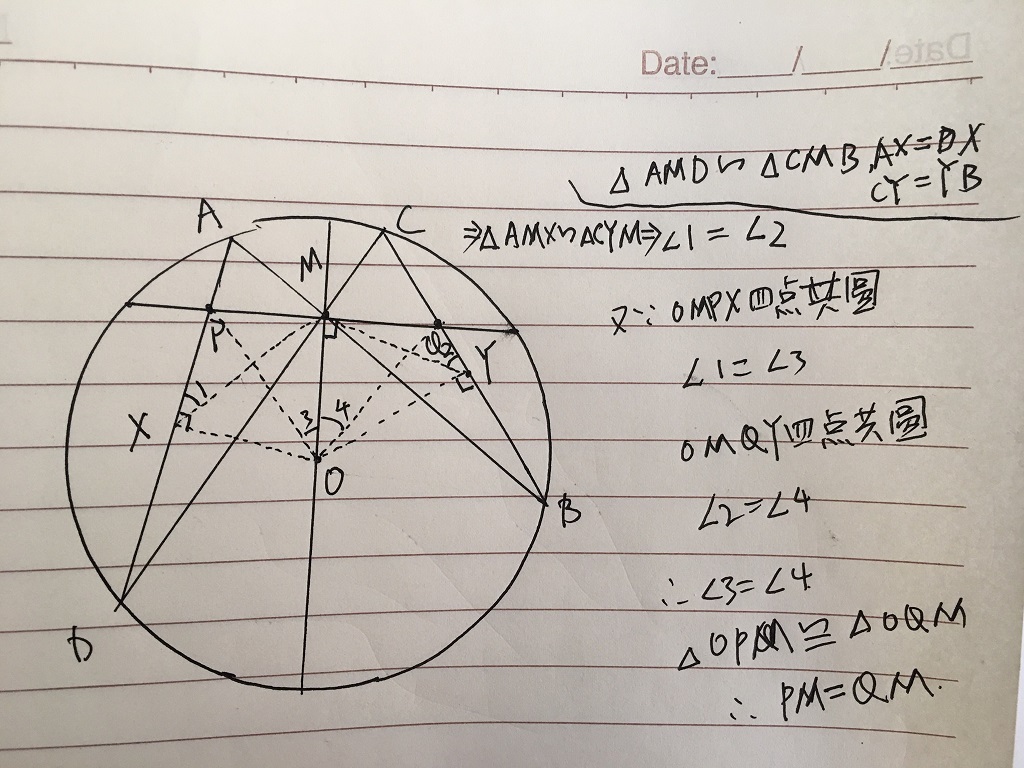 Date:____/____/____
△AMD∽△CMB, AX=DX
CY=YB
⇒△AMX∽△CYM⇒∠1=∠2
又∵OMPX四点共圓
∠1=∠3
OMQY四点共圓
∠2=∠4
∴∠3=∠4
△OPM≌△OQM
∴PM=QM.
A
C
M
P
Q
2
Y
1
X
3
4
O
B
D